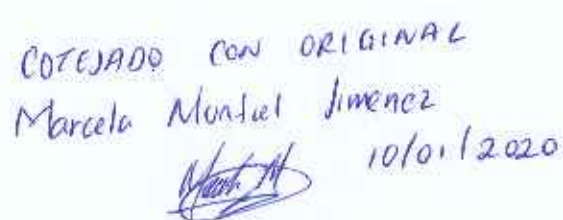 COTEJADO CON ORIGINAL
Marcela Montiel Jimenez
10/01/2020